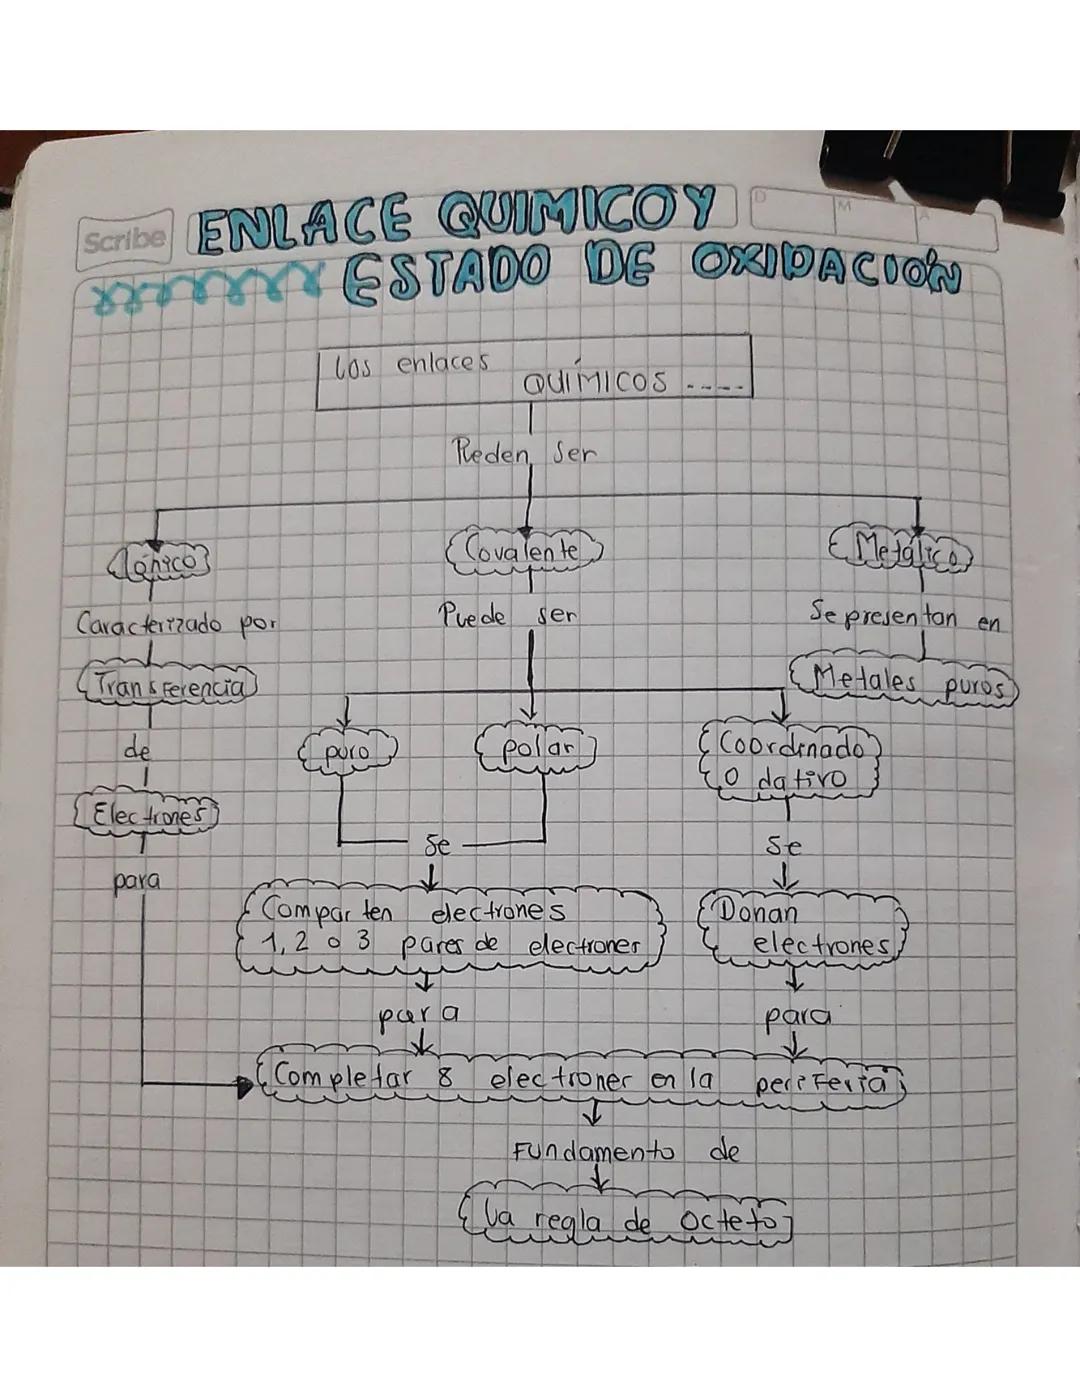 Scribe
D M A
ENLACE QUIMICO Y
ESTADO DE OXIDACIÓN
Los enlaces
QUÍMICOS -----
Pueden ser
Iónico
Covalente
Metálico
Caracterizado por
Puede ser
Se presentan en
Transferencia
Metales puros
de
puro
polar
Coordinado
O dativo
Electrones
Se
Se
para
Comparten electrones
1, 2 o 3 pares de electrones
Donan
electrones
para
para
Completar 8 electrones en la periferia
Fundamento de
La regla de octeto